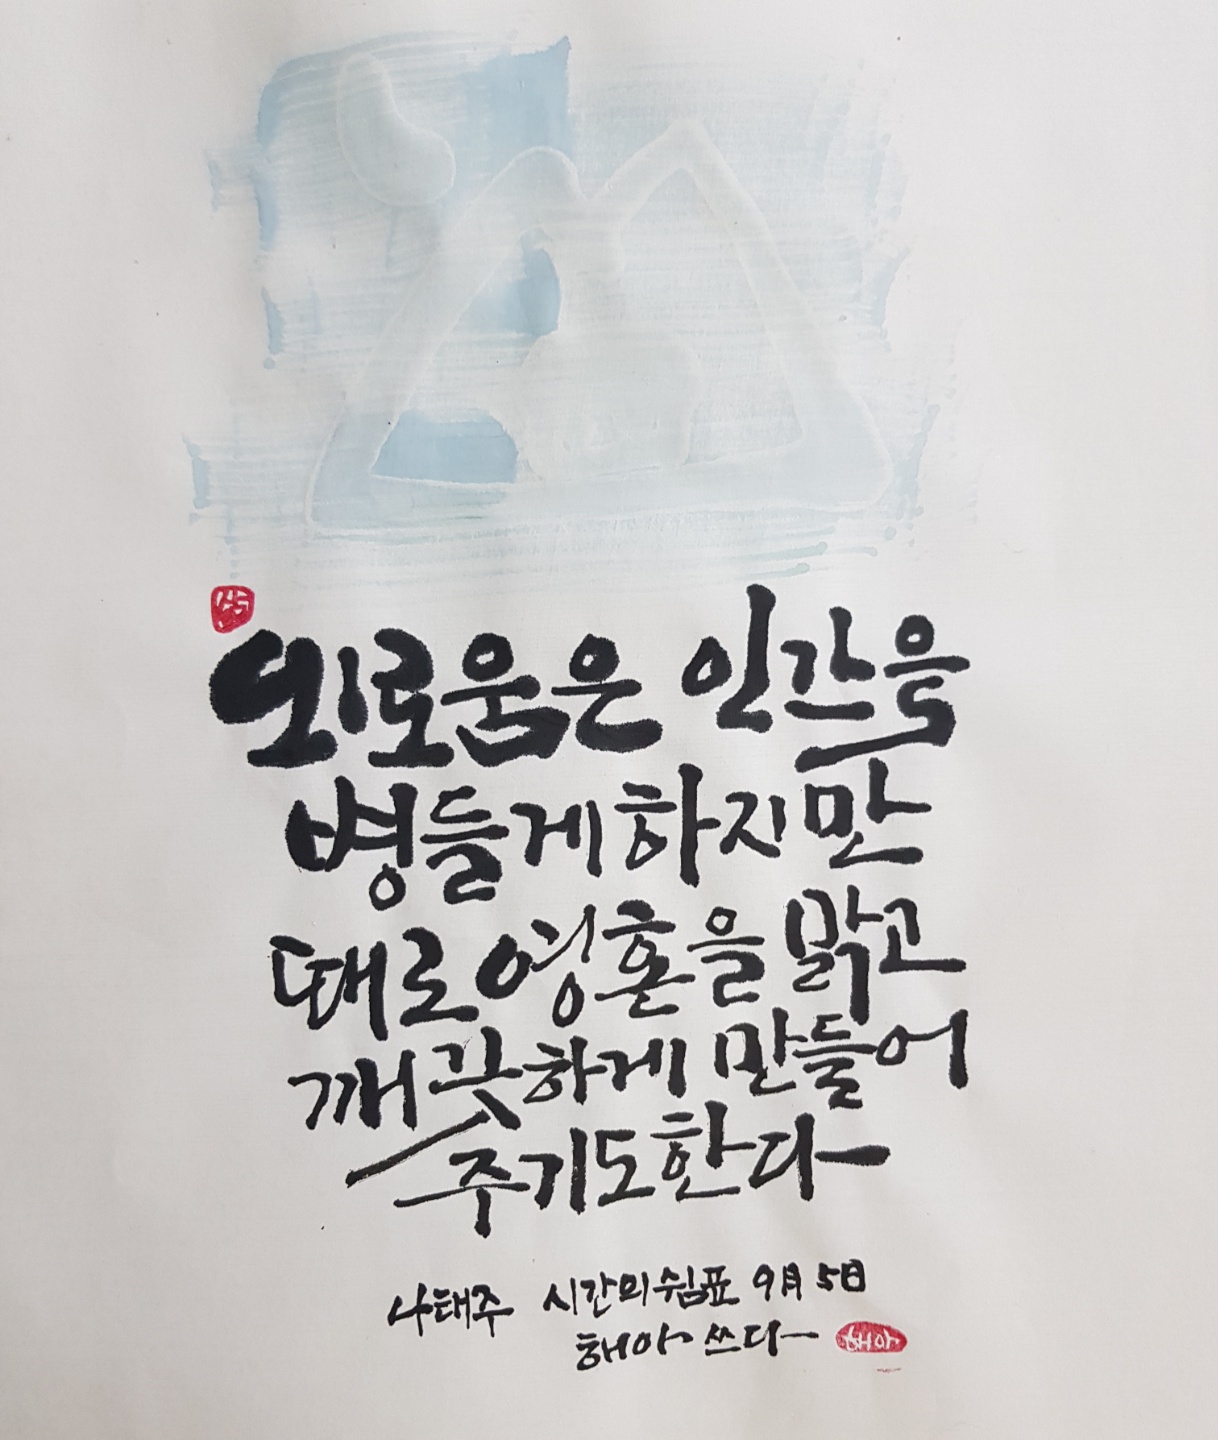 외로움은 인간을
병들게 하지만
때로 영혼을 맑고
깨끗하게 만들어
주기도한다
나태주 시간의쉼표 9月 5日
해아 쓰다
해아